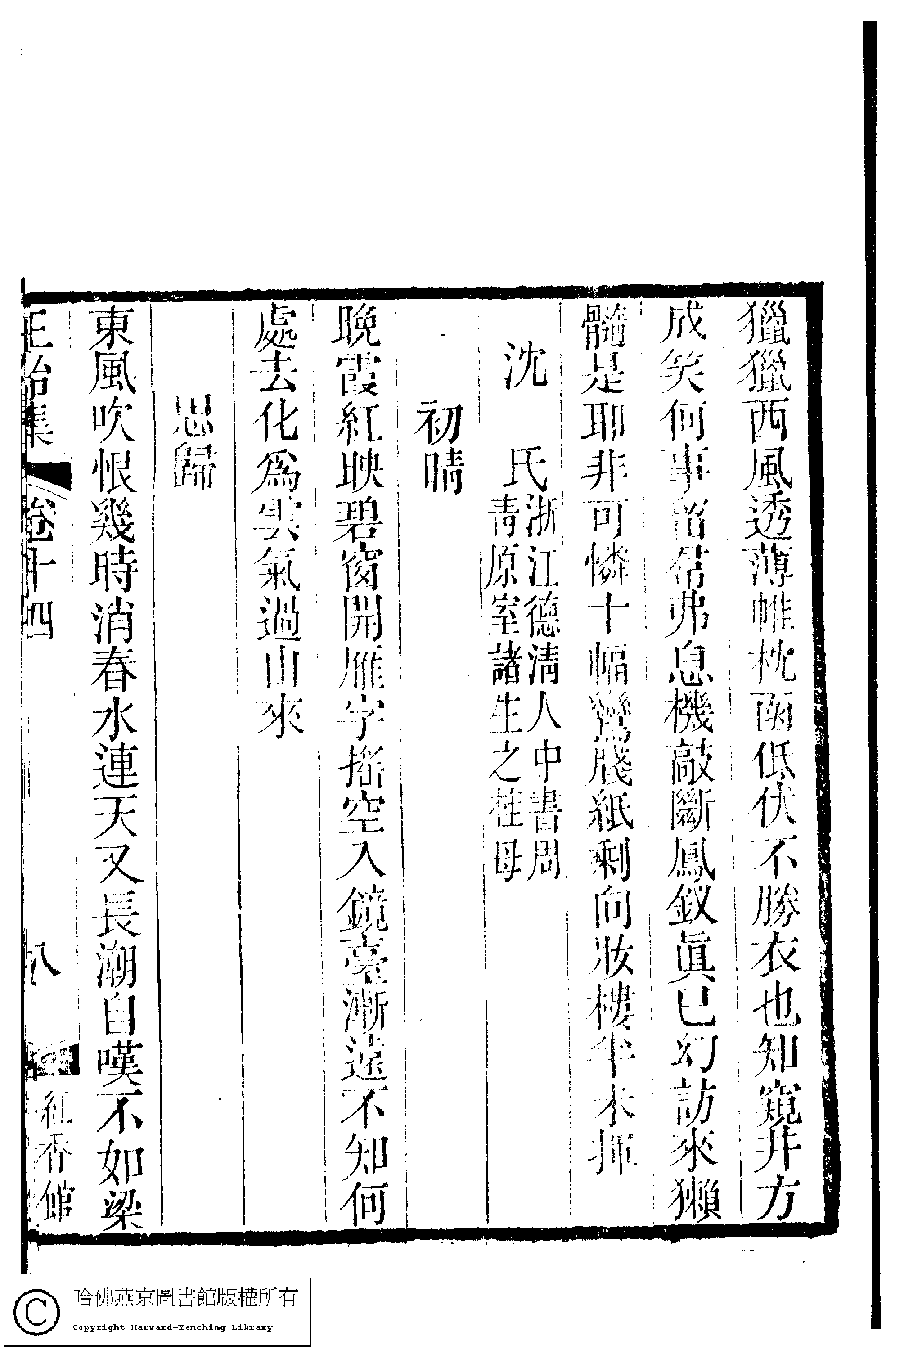 獵獵西風透薄帷枕函低伏不勝衣也知窺井方
成笑何事當帚弗息機敲斷鳳釵眞已幻訪來獺
髓是耶非可憐十幅鸞牋紙剩向妝樓半未揮
沈　氏浙江德清人中書周
青原室諸生之桂母
初晴
晚霞紅映碧窗開雁字搖空入鏡臺漸遠不知何
處去化爲雲氣過山來
思歸
東風吹恨幾時消春水連天又長潮自嘆不如梁
正始集　卷十四　八　紅香館
哈佛燕京圖書館版權所有
Copyright Harvard-Yenching Library